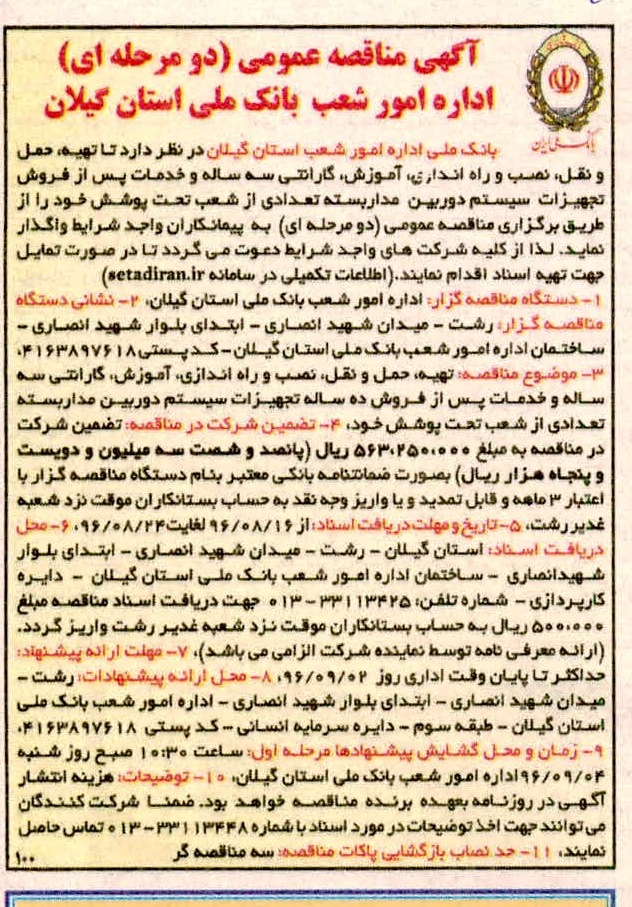 آگهی مناقصه عمومی (دو مرحله ای)
اداره امور شعب بانک ملی استان گیلان
بانک ملی ایران
بانک ملی اداره امور شعب استان گیلان در نظر دارد تا تهیه، حمل
و نقل، نصب و راه اندازی، آموزش، گارانتی سه ساله و خدمات پس از فروش
تجهیزات سیستم دوربین مداربسته تعدادی از شعب تحت پوشش خود را از
طریق برگزاری مناقصه عمومی (دو مرحله ای) به پیمانکاران واجد شرایط واگذار
نماید. لذا از کلیه شرکت های واجد شرایط دعوت می گردد تا در صورت تمایل
جهت تهیه اسناد اقدام نمایند.(اطلاعات تکمیلی در سامانه setadiran.ir)
۱- دستگاه مناقصه گزار: اداره امور شعب بانک ملی استان گیلان، ۲- نشانی دستگاه
مناقصه گزار: رشت - میدان شهید انصاری - ابتدای بلوار شهید انصاری -
ساختمان اداره امور شعب بانک ملی استان گیلان - کد پستی ۴۱۶۳۸۹۷۶۱۸،
۳- موضوع مناقصه: تهیه، حمل و نقل، نصب و راه اندازی، آموزش، گارانتی سه
ساله و خدمات پس از فروش ده ساله تجهیزات سیستم دوربین مداربسته
تعدادی از شعب تحت پوشش خود، ۴- تضمین شرکت در مناقصه: تضمین شرکت
در مناقصه به مبلغ ۵۶۳،۲۵۰،۰۰۰ ریال (پانصد و شصت سه میلیون و دویست
و پنجاه هزار ریال) بصورت ضمانتنامه بانکی معتبر بنام دستگاه مناقصه گزار با
اعتبار ۳ ماهه و قابل تمدید و یا واریز وجه نقد به حساب بستانکاران موقت نزد شعبه
غدیر رشت، ۵- تاریخ و مهلت دریافت اسناد: از ۹۶/۰۸/۱۶ لغایت ۹۶/۰۸/۲۴، ۶- محل
دریافت اسناد: استان گیلان - رشت - میدان شهید انصاری - ابتدای بلوار
شهیدانصاری - ساختمان اداره امور شعب بانک ملی استان گیلان - دایره
کارپردازی - شماره تلفن: ۳۳۱۱۳۴۲۵-۰۱۳ جهت دریافت اسناد مناقصه مبلغ
۵۰۰،۰۰۰ ریال به حساب بستانکاران موقت نزد شعبه غدیر رشت واریز گردد.
(ارائه معرفی نامه توسط نماینده شرکت الزامی می باشد)، ۷- مهلت ارائه پیشنهاد:
حداکثر تا پایان وقت اداری روز ۹۶/۰۹/۰۲، ۸- محل ارائه پیشنهادات: رشت -
میدان شهید انصاری - ابتدای بلوار شهید انصاری - اداره امور شعب بانک ملی
استان گیلان - طبقه سوم - دایره سرمایه انسانی - کد پستی ۴۱۶۳۸۹۷۶۱۸،
۹- زمان و محل گشایش پیشنهادها مرحله اول: ساعت ۱۰:۳۰ صبح روز شنبه
۹۶/۰۹/۰۴ اداره امور شعب بانک ملی استان گیلان، ۱۰- توضیحات: هزینه انتشار
آگهی در روزنامه بعهده برنده مناقصه خواهد بود. ضمنا شرکت کنندگان
می توانند جهت اخذ توضیحات در مورد اسناد با شماره ۳۳۱۱۳۴۴۸-۰۱۳ تماس حاصل
نمایند، ۱۱- حد نصاب بازگشایی پاکات مناقصه: سه مناقصه گر
۱۰۰